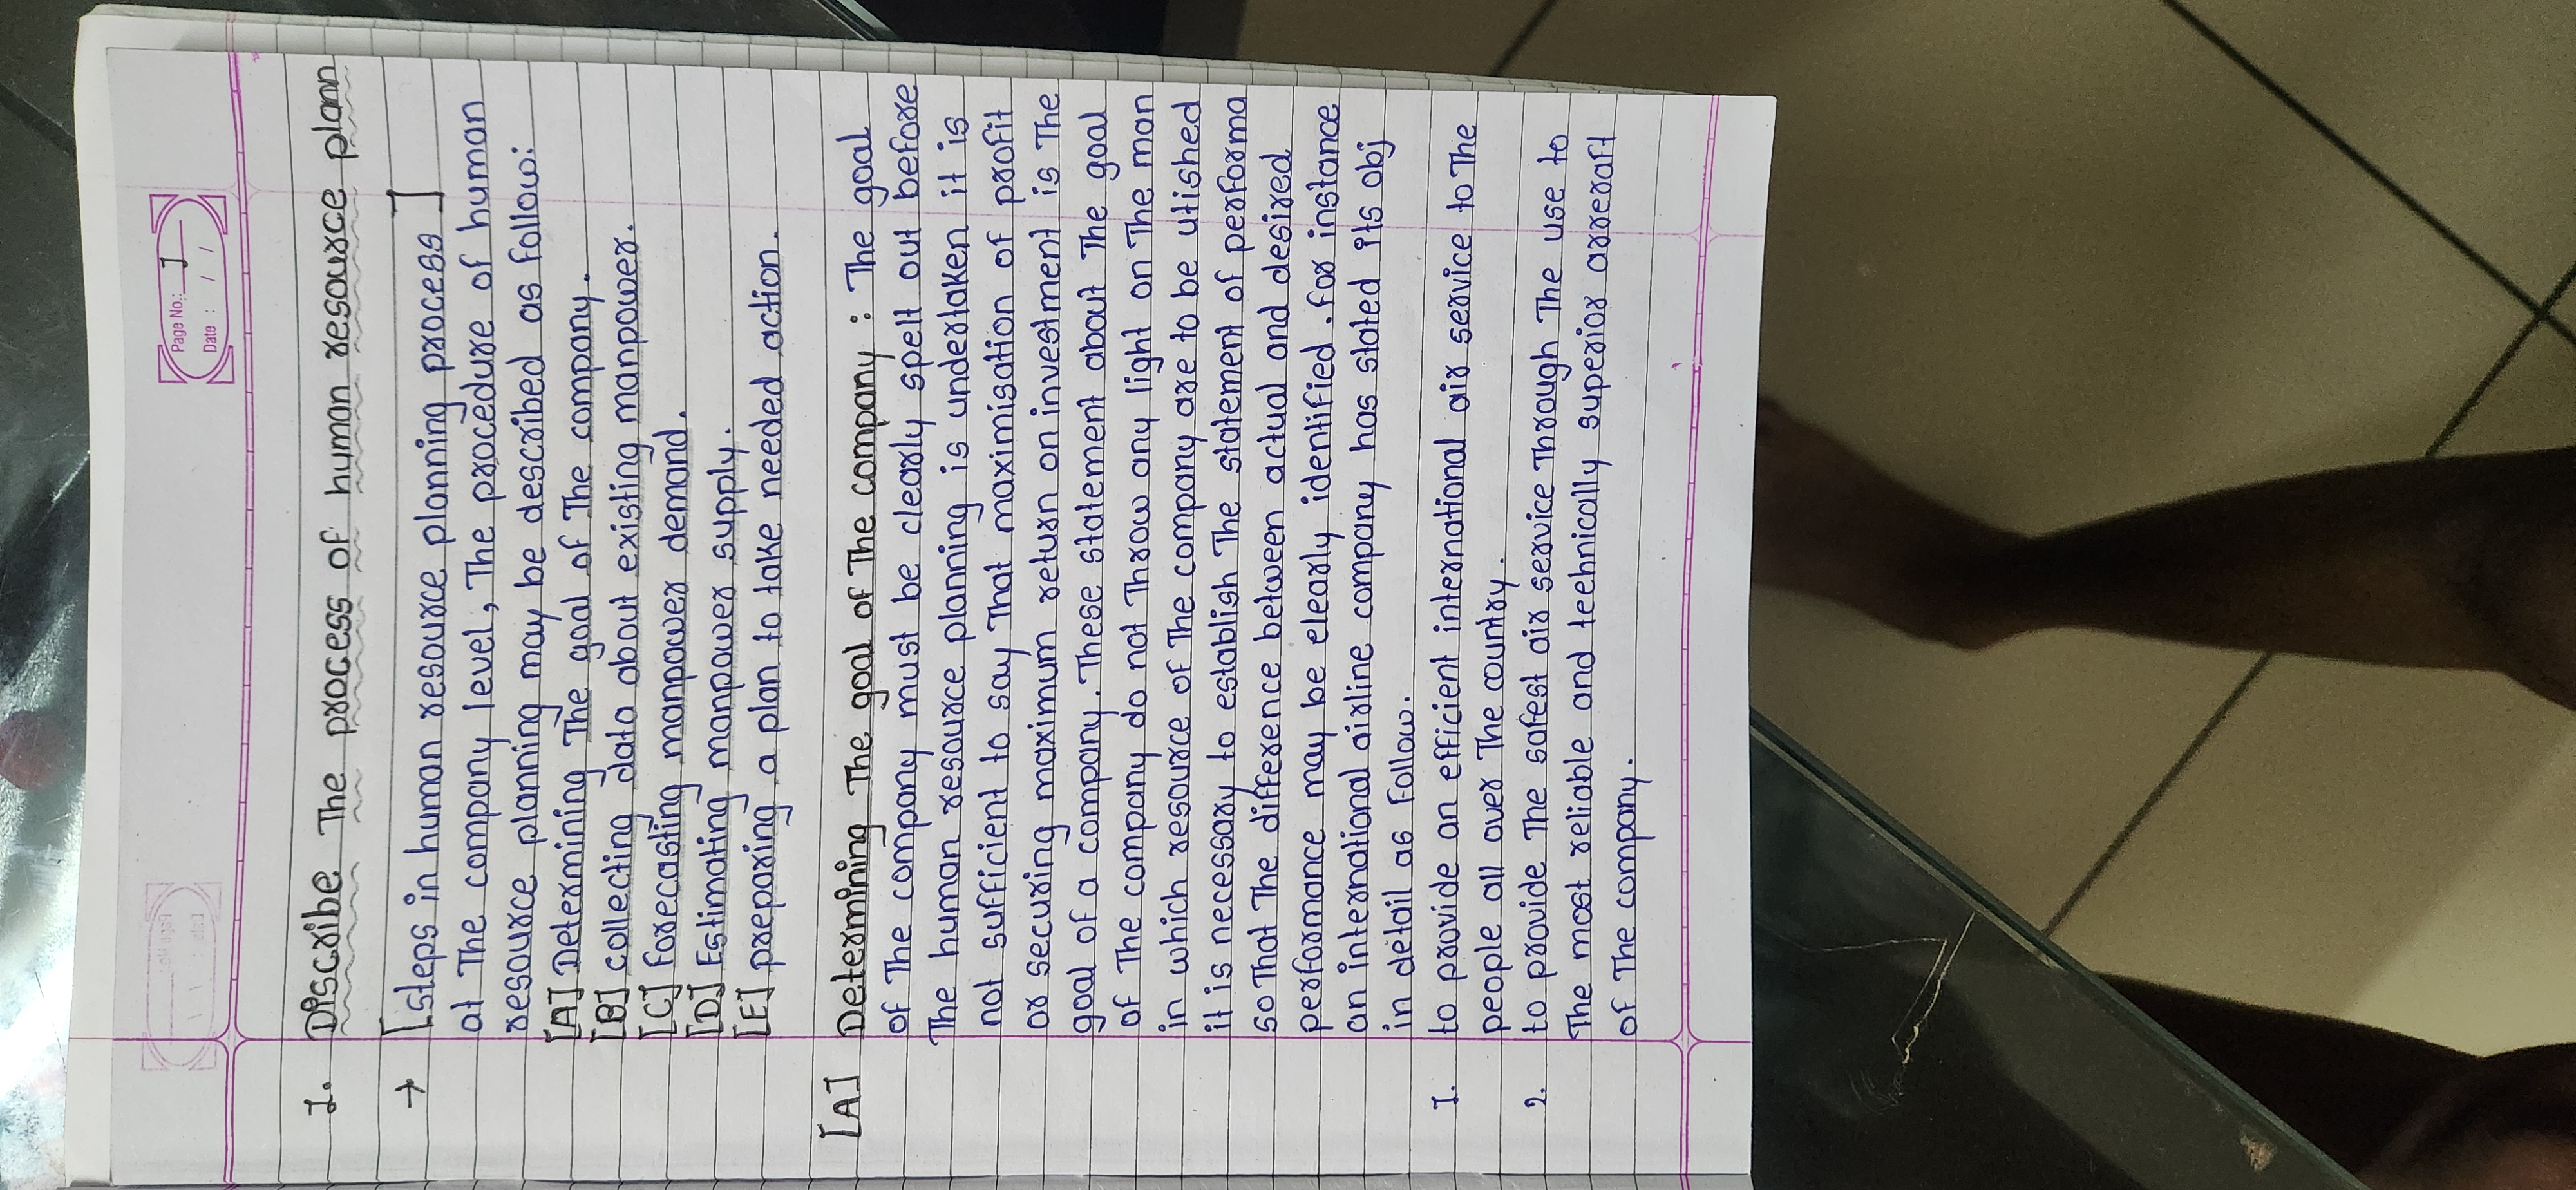 Page No.: 1
Date : / /
1. Discribe The process of human resource plann
→ [steps in human resource planning process]
at The company level, The procedure of human
resource planning may be described as follow:
[A] Determining The goal of The company.
[B] collecting data about existing manpower.
[C] forecasting manpower demand.
[D] Estimating manpower supply.
[E] preparing a plan to take needed action.
[A] Determining The goal of The company : The goal
of The company must be clearly spelt out before
The human resource planning is undertaken it is
not sufficient to say That maximisation of profit
or securing maximum return on investment is The
goal of a company. These statement about The goal
of The company do not Throw any light on The man
in which resource of The company are to be utished
it is necessary to establish The statement of performa
so That The difference between actual and desired
performance may be clearly identified. for instance
an international airline company has stated its obj
in detail as follow.
1. to provide an efficient international air service to The
people all over The country.
2. to provide The safest air service Through The use to
The most reliable and technically superior arreraft
of The company.